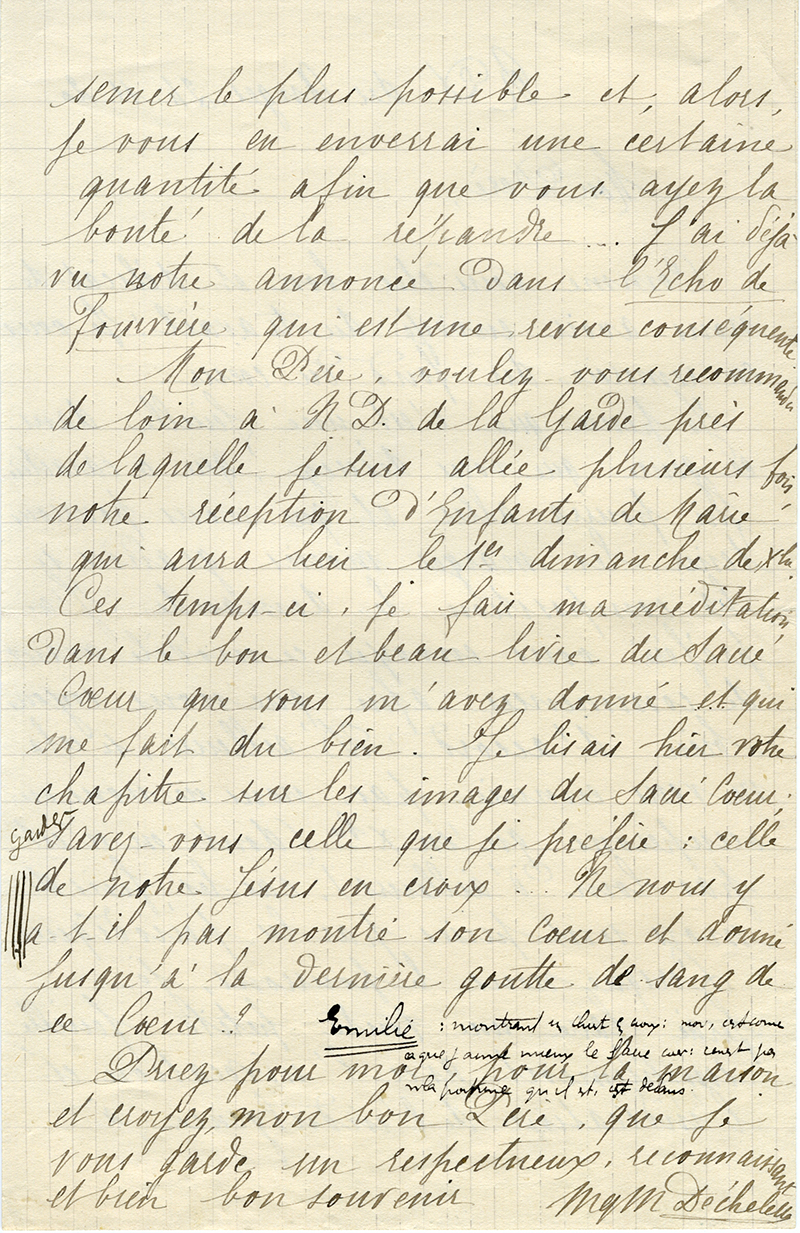 semer le plus possible et, alors,
je vous en enverrai une certaine
quantité afin que vous ayez la
bonté de la répandre... J'ai déjà
vu notre annonce dans l'Echo de
Fourvière qui est une revue conséquente
Mon Père, voulez-vous recommander
de loin à N D. de la Garde près
de laquelle je suis allée plusieurs fois,
notre réception d'Enfants de Marie
qui aura lieu le 1er dimanche de Xbre
Ces temps-ci, je fais ma méditation
dans le bon et beau livre du Sacré
Coeur que vous m'avez donné et qui
me fait du bien. Je lisais hier votre
chapitre sur les images du Sacré Coeur;
garder
savez-vous celle que je préfère : celle
de notre Jésus en croix... Ne nous y
a-t-il pas montré son Coeur et donné
jusqu'à la dernière goutte de sang de
ce Coeur !!
Emilie : montrant un christ en croix : moi, c'est comme
ça que j'aime mieux le Sacré Coeur :
qu'il est, est dedans.
Priez pour moi, pour la maison
et croyez, mon bon Père, que je
vous garde un respectueux, reconnaissant
et bien bon souvenir MgM Déchelette